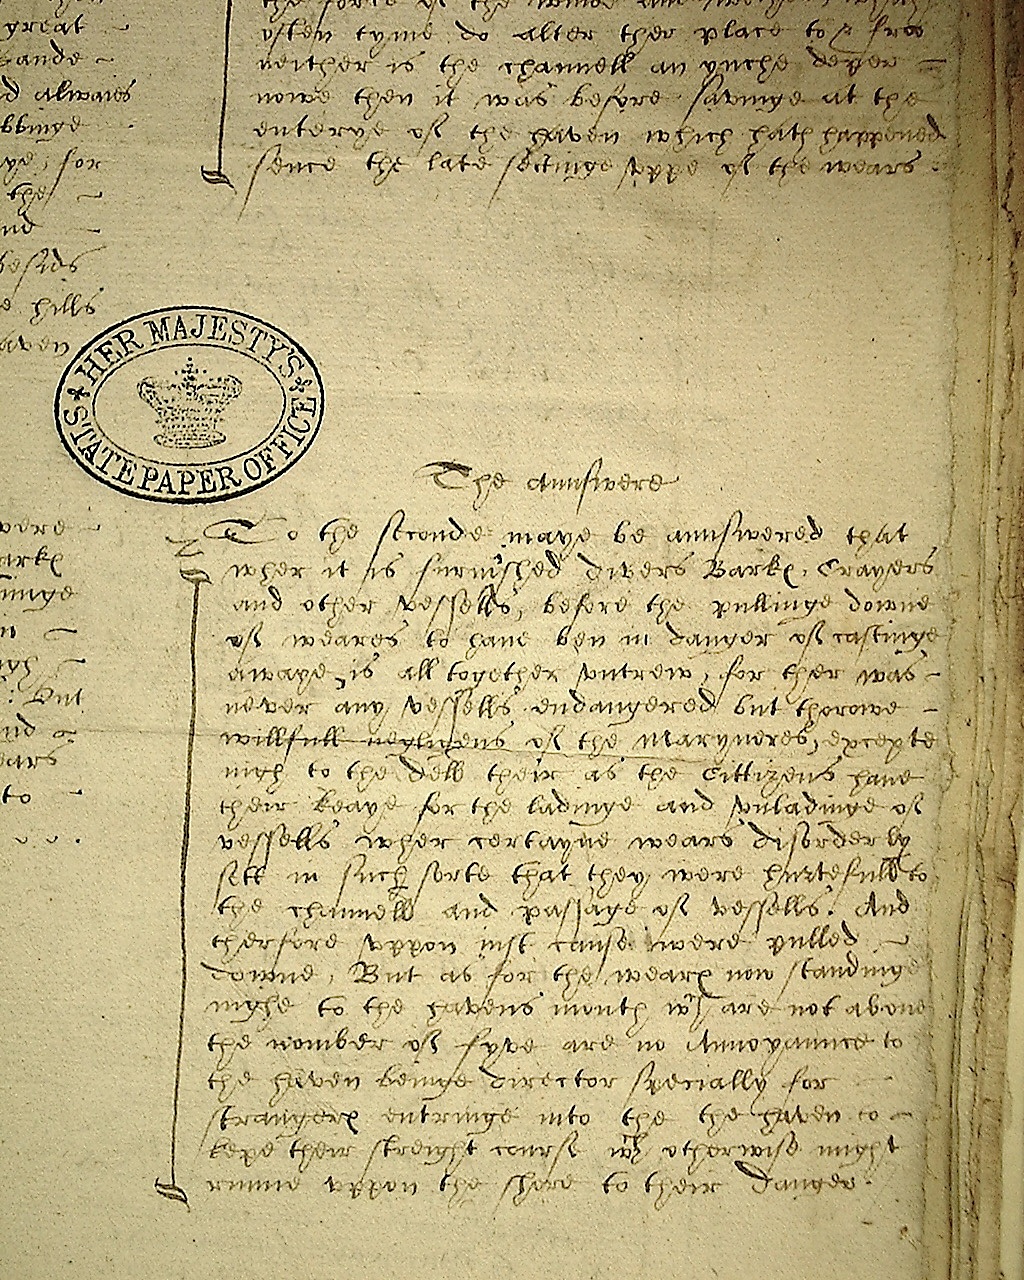 great
sande
d alwaies
bbinge
ye, for
the
nd
besids
e hills
aven
often tyme do alter ther place to & froo
neither is the channell an ynche deper
nowe then it was before savinge at the
enterye of the haven which hath happened
sence the late settinge uppe of the wears.
HER MAJESTY'S
STATE PAPER OFFICE
The Aunswere
were
arkes
inge
n
gh
: But
nd a
ears
to
2
To the seconde maye be aunswered that
wher it is furnished divers Barkes, Crayers
and other vessells, before the pullinge downe
of weares to have ben in danger of castinge
awaye, is all together untrew, for ther was
never any vessells endangered but thorowe
willfull negligens of the Maryneres, excepte
nigh to the dell their as the Cittizens have
their keaye for the ladinge and unladinge of
vessells wher certayne wears disorderly
sett in such sorte that they were hurtefull to
the channell and passage of vessells. And
therfore uppon just cause were pulled
downe, But as for the weares now standinge
nighe to the havens mouth wch are not above
the nomber of fyve are no Annoyaunce to
the haven beinge director specially for
strangers entringe into the the haven to
kepe their streight course wch otherwise might
runne uppon the shore to their danger.